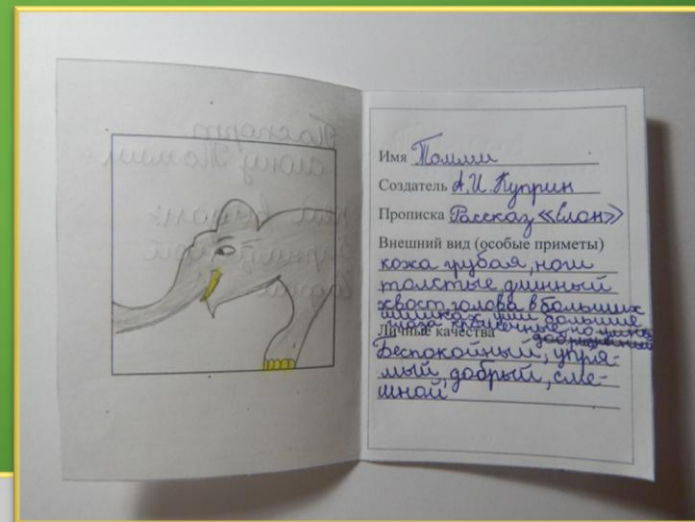 Имя Томми
Создатель А.И. Куприн
Прописка Рассказ «Слон»
Внешний вид (особые приметы)
кожа грубая, ноги
толстые, длинный
хвост, голова в больших
шишках, уши большие
глаза крошечные, но умные
Личные качества добрые
Беспокойный, упря-
мый, добрый, сме-
шной